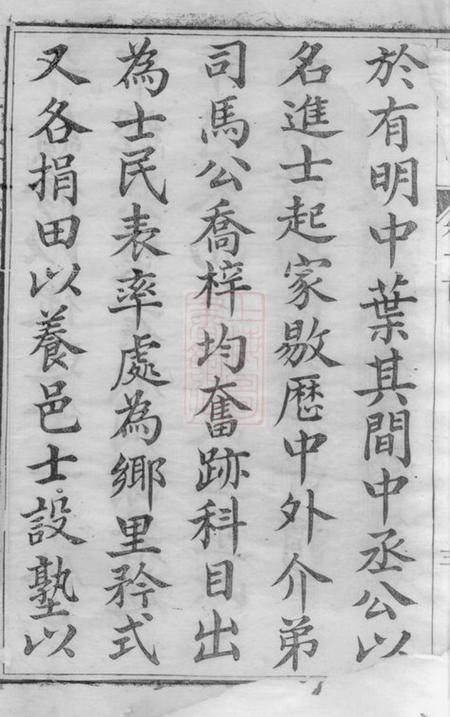 於有明中葉其間中丞公以
名進士起家敭歷中外介弟
司馬公喬梓均奮跡科目出
為士民表率處為鄉里矜式
又各捐田以養邑士設塾以